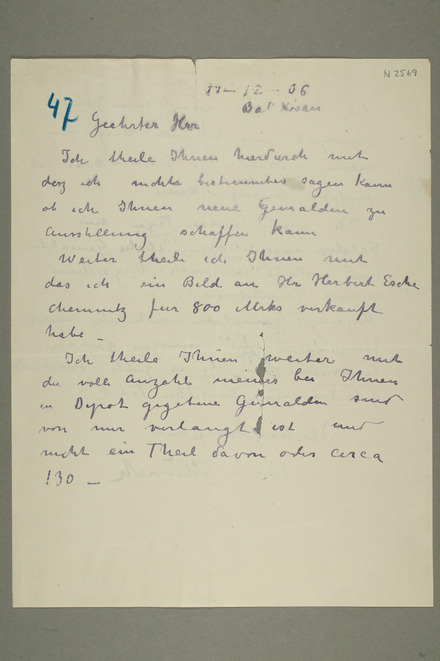 N 2569
17-12-06
Bad Kösen
47
Geehrter Herr
Ich theile Ihnen hierdurch mit
dasz ich nichts bestimmtes sagen kann
ob ich Ihnen neue Gemälden zu
Ausstellung schaffen kann
Weiter theile ich Ihnen mit
das ich ein Bild an Hr Herbert Esche
Chemnitz für 800 Mrks verkauft
habe -
Ich theile Ihnen weiter mit
die volle Anzahl meines bei Ihnen
in Depot gegebene Gemälden sind
von mir verlangt ist und
nicht ein Theil davon oder circa
130 -